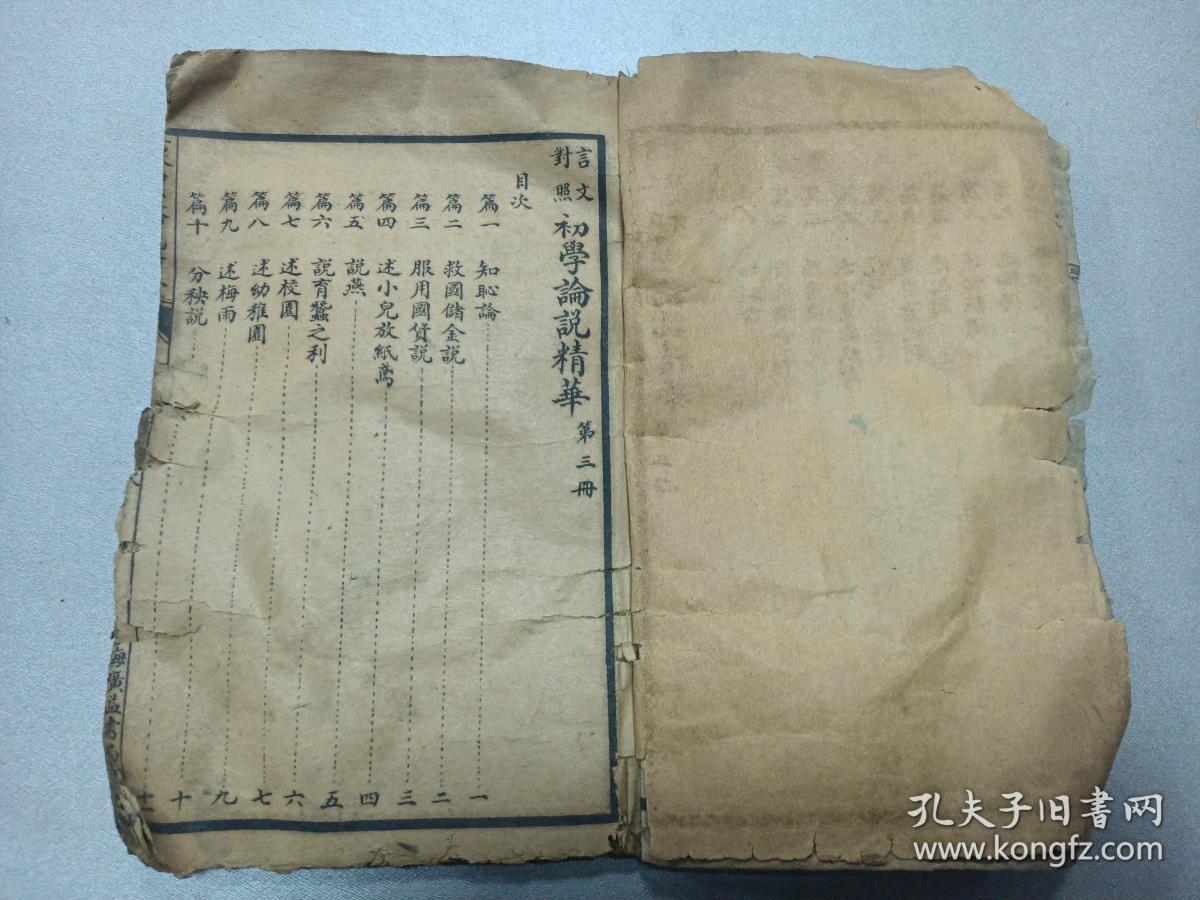 言文對照初學論說精華第三冊
目次
篇一 知恥論……一
篇二 救國儲金說……二
篇三 服用國貨說……三
篇四 述小兒放紙鳶……四
篇五 說燕……五
篇六 說育蠶之利……六
篇七 述校園……七
篇八 述幼稚園……九
篇九 述梅雨……十
篇十 分秧說……十一
海廣益書
孔夫子旧書网
www.kongfz.com